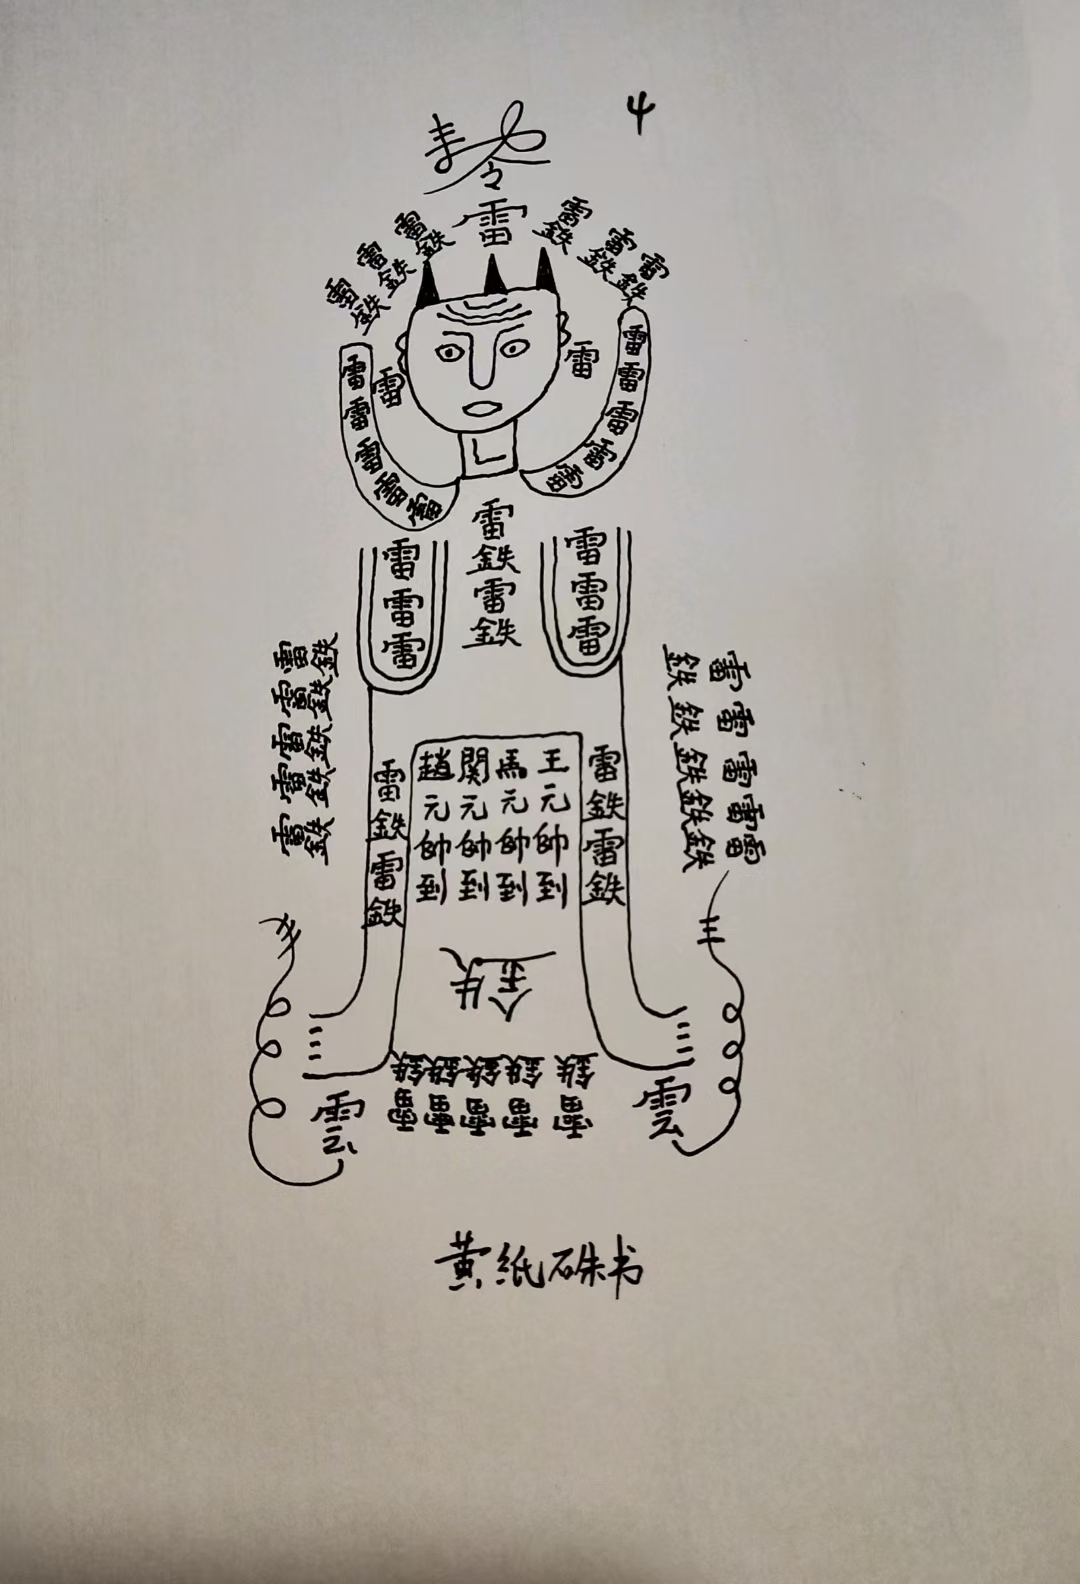 4
令
雷
雷鉄 雷鉄 雷鉄
雷鉄 雷鉄 雷鉄
雷 雷
雷雷雷雷雷
雷雷雷雷雷
雷鉄雷鉄
雷雷雷
雷雷雷
雷鉄 雷鉄 雷鉄 雷鉄 雷鉄
雷鉄 雷鉄 雷鉄 雷鉄 雷鉄
雷鉄雷鉄
趙元帥到
関元帥到
馬元帥到
王元帥到
雷鉄雷鉄
鉄
鉄鉄鉄鉄鉄
雷雷雷雷雷
雲 雲
黄纸硃书